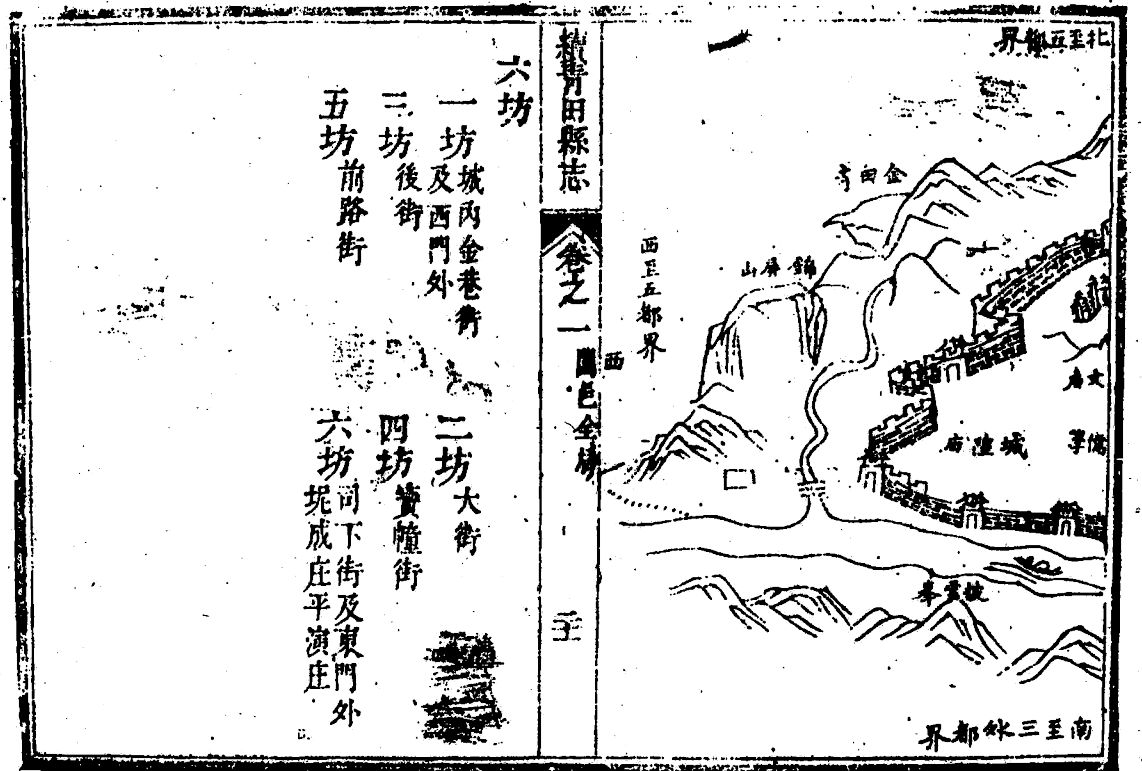 北至五都界
金田湾
錦屏山
西至五都界
西
文庙
儒學
城隍庙
披雲峯
南至三都界
續青田縣志
卷之一
圖邑全境
六坊
一坊 城内金巷街及西門外
二坊 大街
三坊 後街
四坊 寶幢街
五坊 前路街
六坊 司下街及東門外坭成庄平演庄